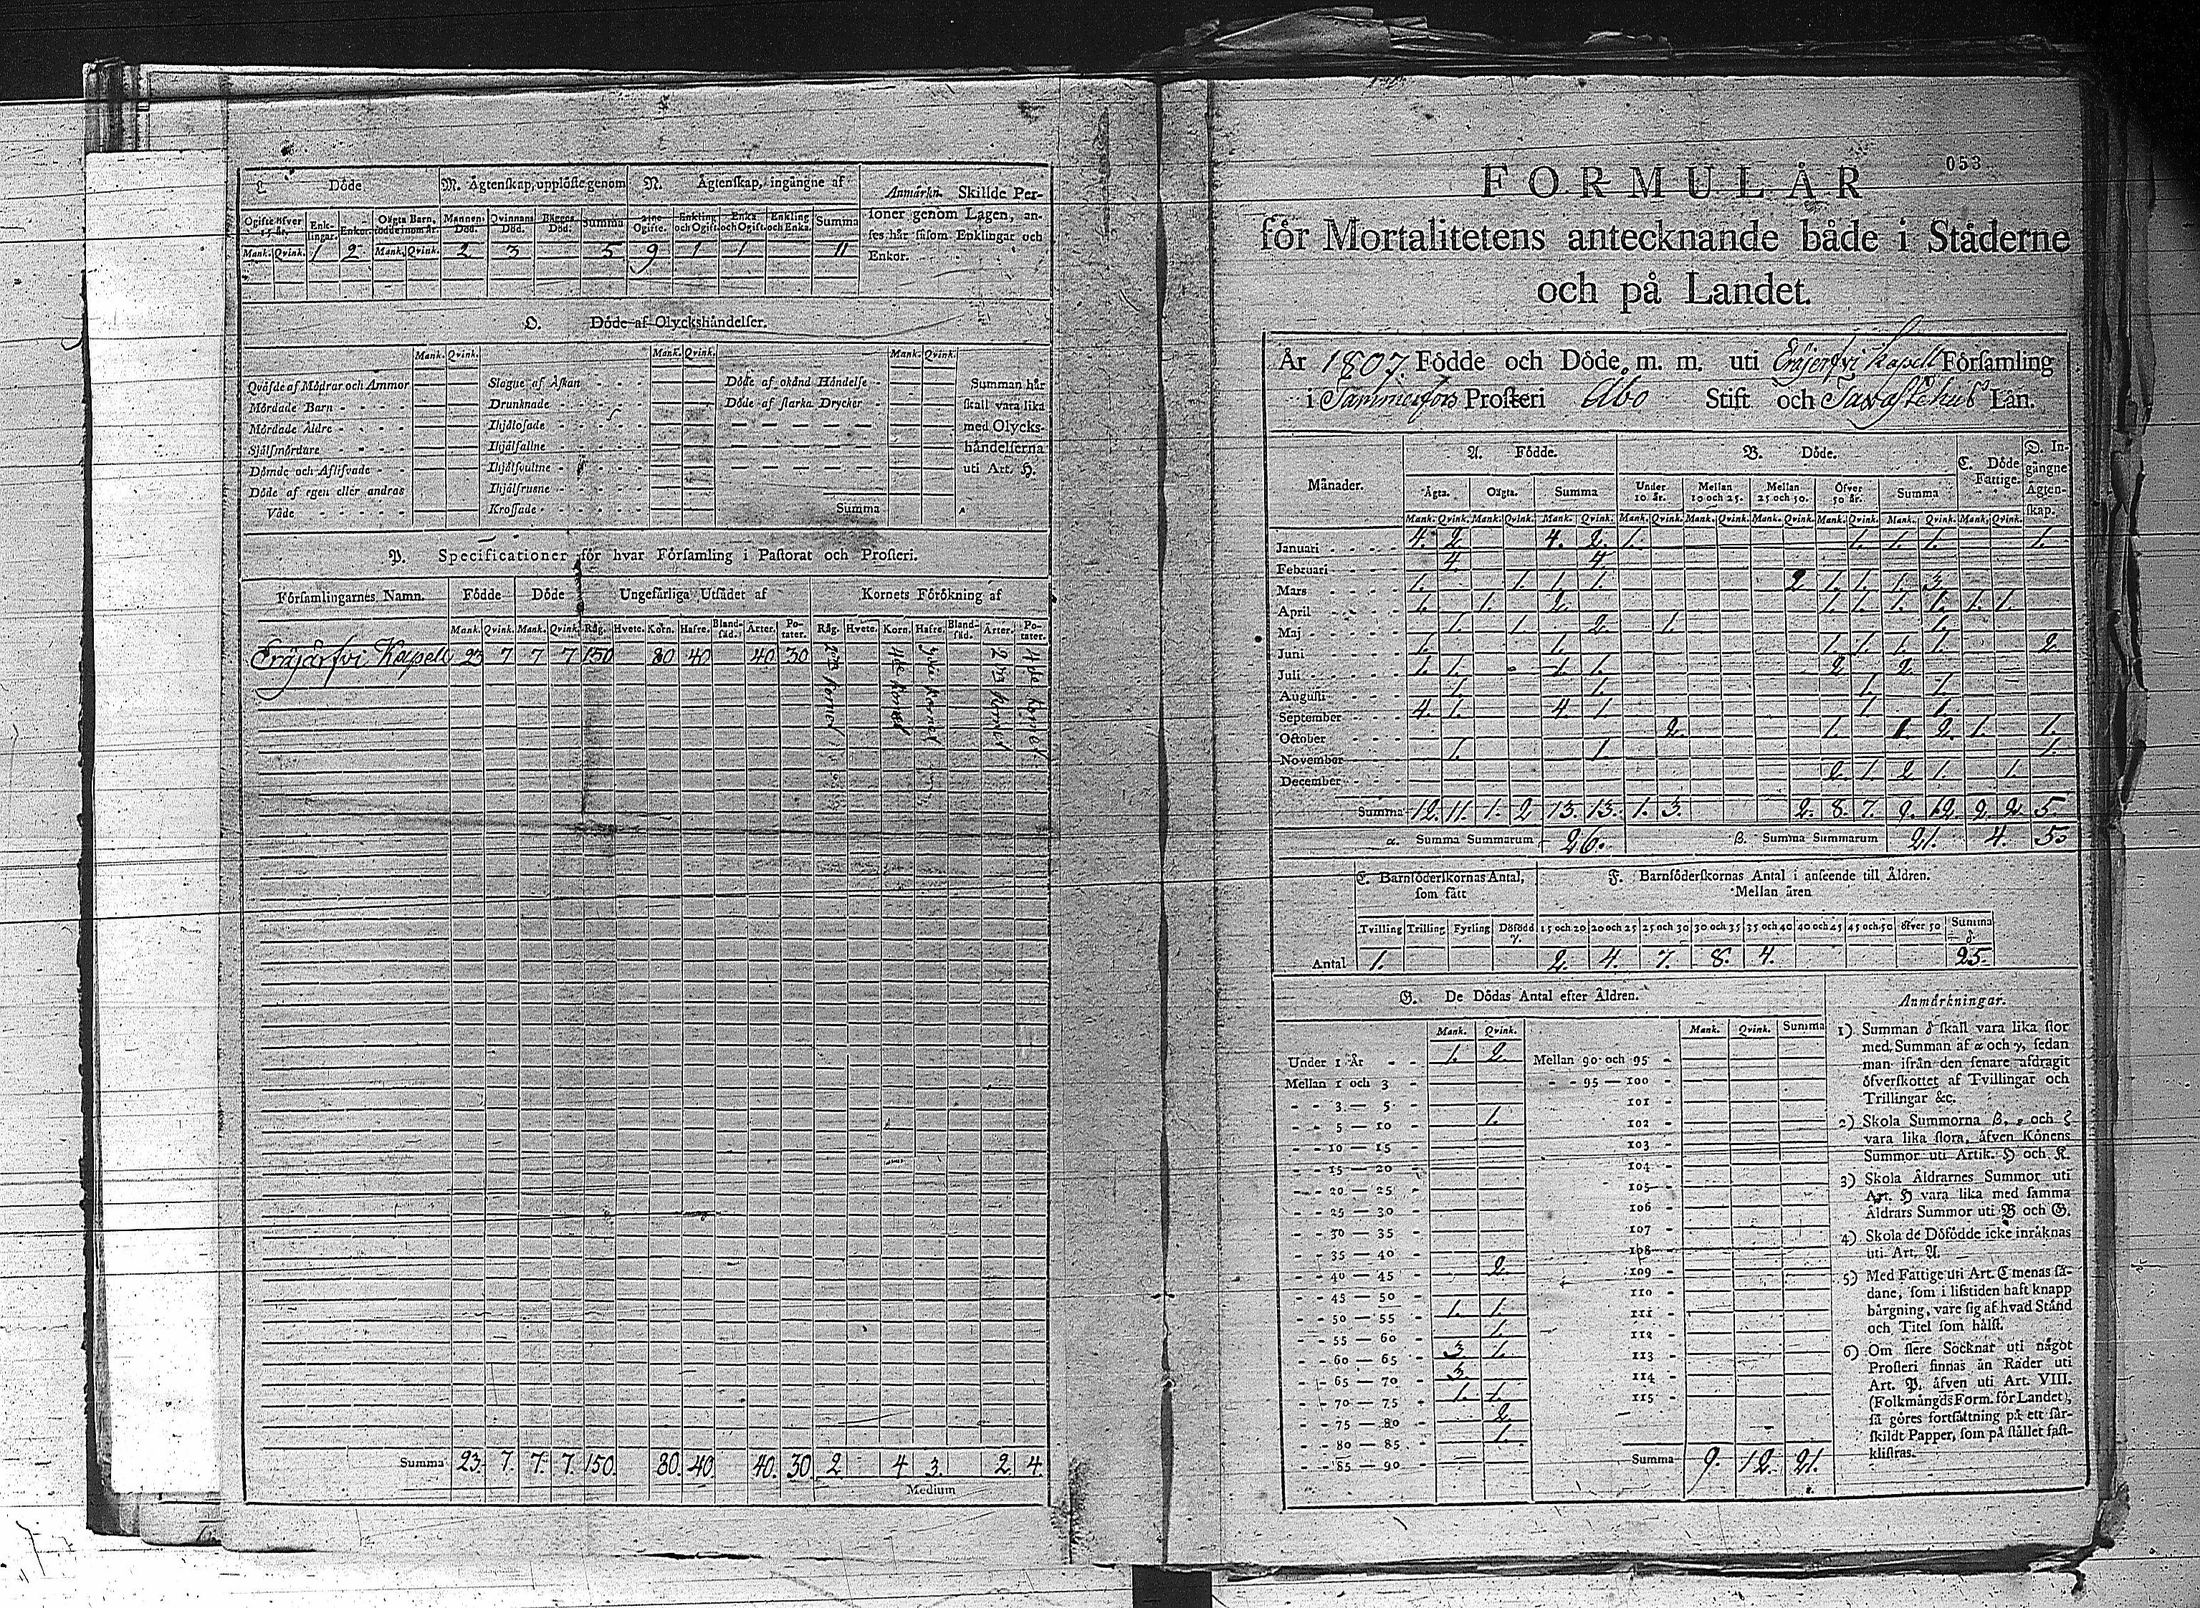 L Döde M. Ägtenskap, upplöste genom N. Ägtenskap, ingångne af
Ogifte öfver 15 år. Enklingar. Enkor. Oägta Barn, Mannens Död. Qvinnans Död. Bägges Död. Summa Ogifte. Enkling och Ogift. Enka och Ogift. Enkling och Enka. Summa
Mank. Qvink. 1 2 Mank. Qvink. 2 3 5 9 1 1 11
Anmärkn. Skillde Per-
soner genom Lagen, an-
ses här såsom Enklingar och
Enkor.
O. Döde af Olyckshändelser.
Mank. Qvink. Mank. Qvink. Mank. Qvink.
Qväfde af Mödrar och Ammor
Mördade Barn
Mördade Äldre
Själfmördare
Dömde och Aflifvade
Döde af egen eller andras
Våde
Slagne af Åskan
Drunknade
Ihjälosade
Ihjälfallne
Ihjälsvultne
Ihjälfrusne
Krossade
Döde af okänd Händelse
Döde af starka Drycker
Summa
Summan här
skall vara lika
med Olycks-
händelserna
uti Art. H.
P. Specificationer för hvar Församling i Pastorat och Prosteri.
Församlingarnes Namn. Födde Döde Ungefärliga Utsädet af Kornets Förökning af
Mank. Qvink. Mank. Qvink. Råg. Hvete. Korn. Hafre. Bland-säd. Ärter. Po-tater. Råg. Hvete. Korn. Hafre. Bland-säd. Ärter. Po-tater.
Eräjärfvi Kapell 23 7 7 7 150 80 40 40 30
Summa 23. 7. 7. 7. 150. 80. 40. 40. 30. 2. 4 3. 2. 4.
Medium
053
FORMULÄR
för Mortalitetens antecknande både i Städerne
och på Landet.
År 1807. Födde och Döde, m. m. uti Eräjerfvi Kapell Församling
i Tammerfors Prosteri Åbo Stift och Tavastehus Län.
Månader. A. Födde. B. Döde. C. Döde Fattige. D. In-gångne Ägten-skap.
Ägta. Oägta. Summa Under 10 år. Mellan 10 och 25. Mellan 25 och 50. Öfver 50 år. Summa
Mank. Qvink. Mank. Qvink. Mank. Qvink. Mank. Qvink. Mank. Qvink. Mank. Qvink. Mank. Qvink. Mank. Qvink. Mank. Qvink.
Januari 4. 2. 4. 2. 1. 1. 1. 1. 1.
Februari 4. 4.
Mars 1. 1. 1. 1. 2 1. 1. 1. 3.
April 1. 1. 2. 1. 1. 1. 1. 1. 1.
Maj 1. 1. 2. 1. 1.
Juni 1. 1. 1. 1. 1. 1. 2
Juli 1. 1. 1. 1. 2 2.
Augusti 1. 1. 1. 1.
September 4. 1. 4. 1. 1. 1.
October 2. 1. 1. 2. 1. 1.
November 1. 1. 1.
December 2. 1. 2. 1. 1.
Summa 12. 11. 1. 2 13. 13. 1. 3. 2. 8. 7. 9. 12. 2. 2. 5.
α. Summa Summarum 26. β. Summa Summarum 21. 4. 5.
E. Barnföderskornas Antal, som fått F. Barnföderskornas Antal i anseende till Åldren.
Mellan åren
Tvilling Trilling Fyrling Dödfödd γ. 15 och 20 20 och 25 25 och 30 30 och 35 35 och 40 40 och 45 45 och 50 öfver 50 Summa δ
Antal 1. 2. 4. 7. 8. 4. 25.
G. De Dödas Antal efter Åldren.
Mank. Qvink. Mank. Qvink. Summa
Under 1 År 1. 2. Mellan 90 och 95
Mellan 1 och 3 95 — 100
3 — 5 101
5 — 10 1. 102
10 — 15 103
15 — 20 104
20 — 25 105
25 — 30 106
30 — 35 107
35 — 40 108
40 — 45 2. 109
45 — 50 110
50 — 55 1. 1. 111
55 — 60 1. 112
60 — 65 3. 1. 113
65 — 70 3. 114
70 — 75 1. 1. 115
75 — 80 2.
80 — 85 1.
85 — 90 Summa 9. 12. 21.
Anmärkningar.
1) Summan δ skall vara lika stor
med Summan af α och γ, sedan
man ifrån den senare afdragit
öfverskottet af Tvillingar och
Trillingar &c.
2) Skola Summorna β, ε och ζ
vara lika stora, äfven Könens
Summor uti Artik. H och K.
3) Skola Åldrarnes Summor uti
Art. H vara lika med samma
Åldrars Summor uti B och G.
4) Skola de Dödfödde icke inräknas
uti Art. A.
5) Med Fattige uti Art. C menas så-
dane, som i lifstiden haft knapp
bärgning, vare sig af hvad Stånd
och Titel som hälst.
6) Om flere Socknar uti något
Prosteri finnas än Rader uti
Art. P, äfven uti Art. VIII.
(Folkmängds Form. för Landet),
så göres fortsättning på ett sär-
skildt Papper, som på stället fast-
klistras.